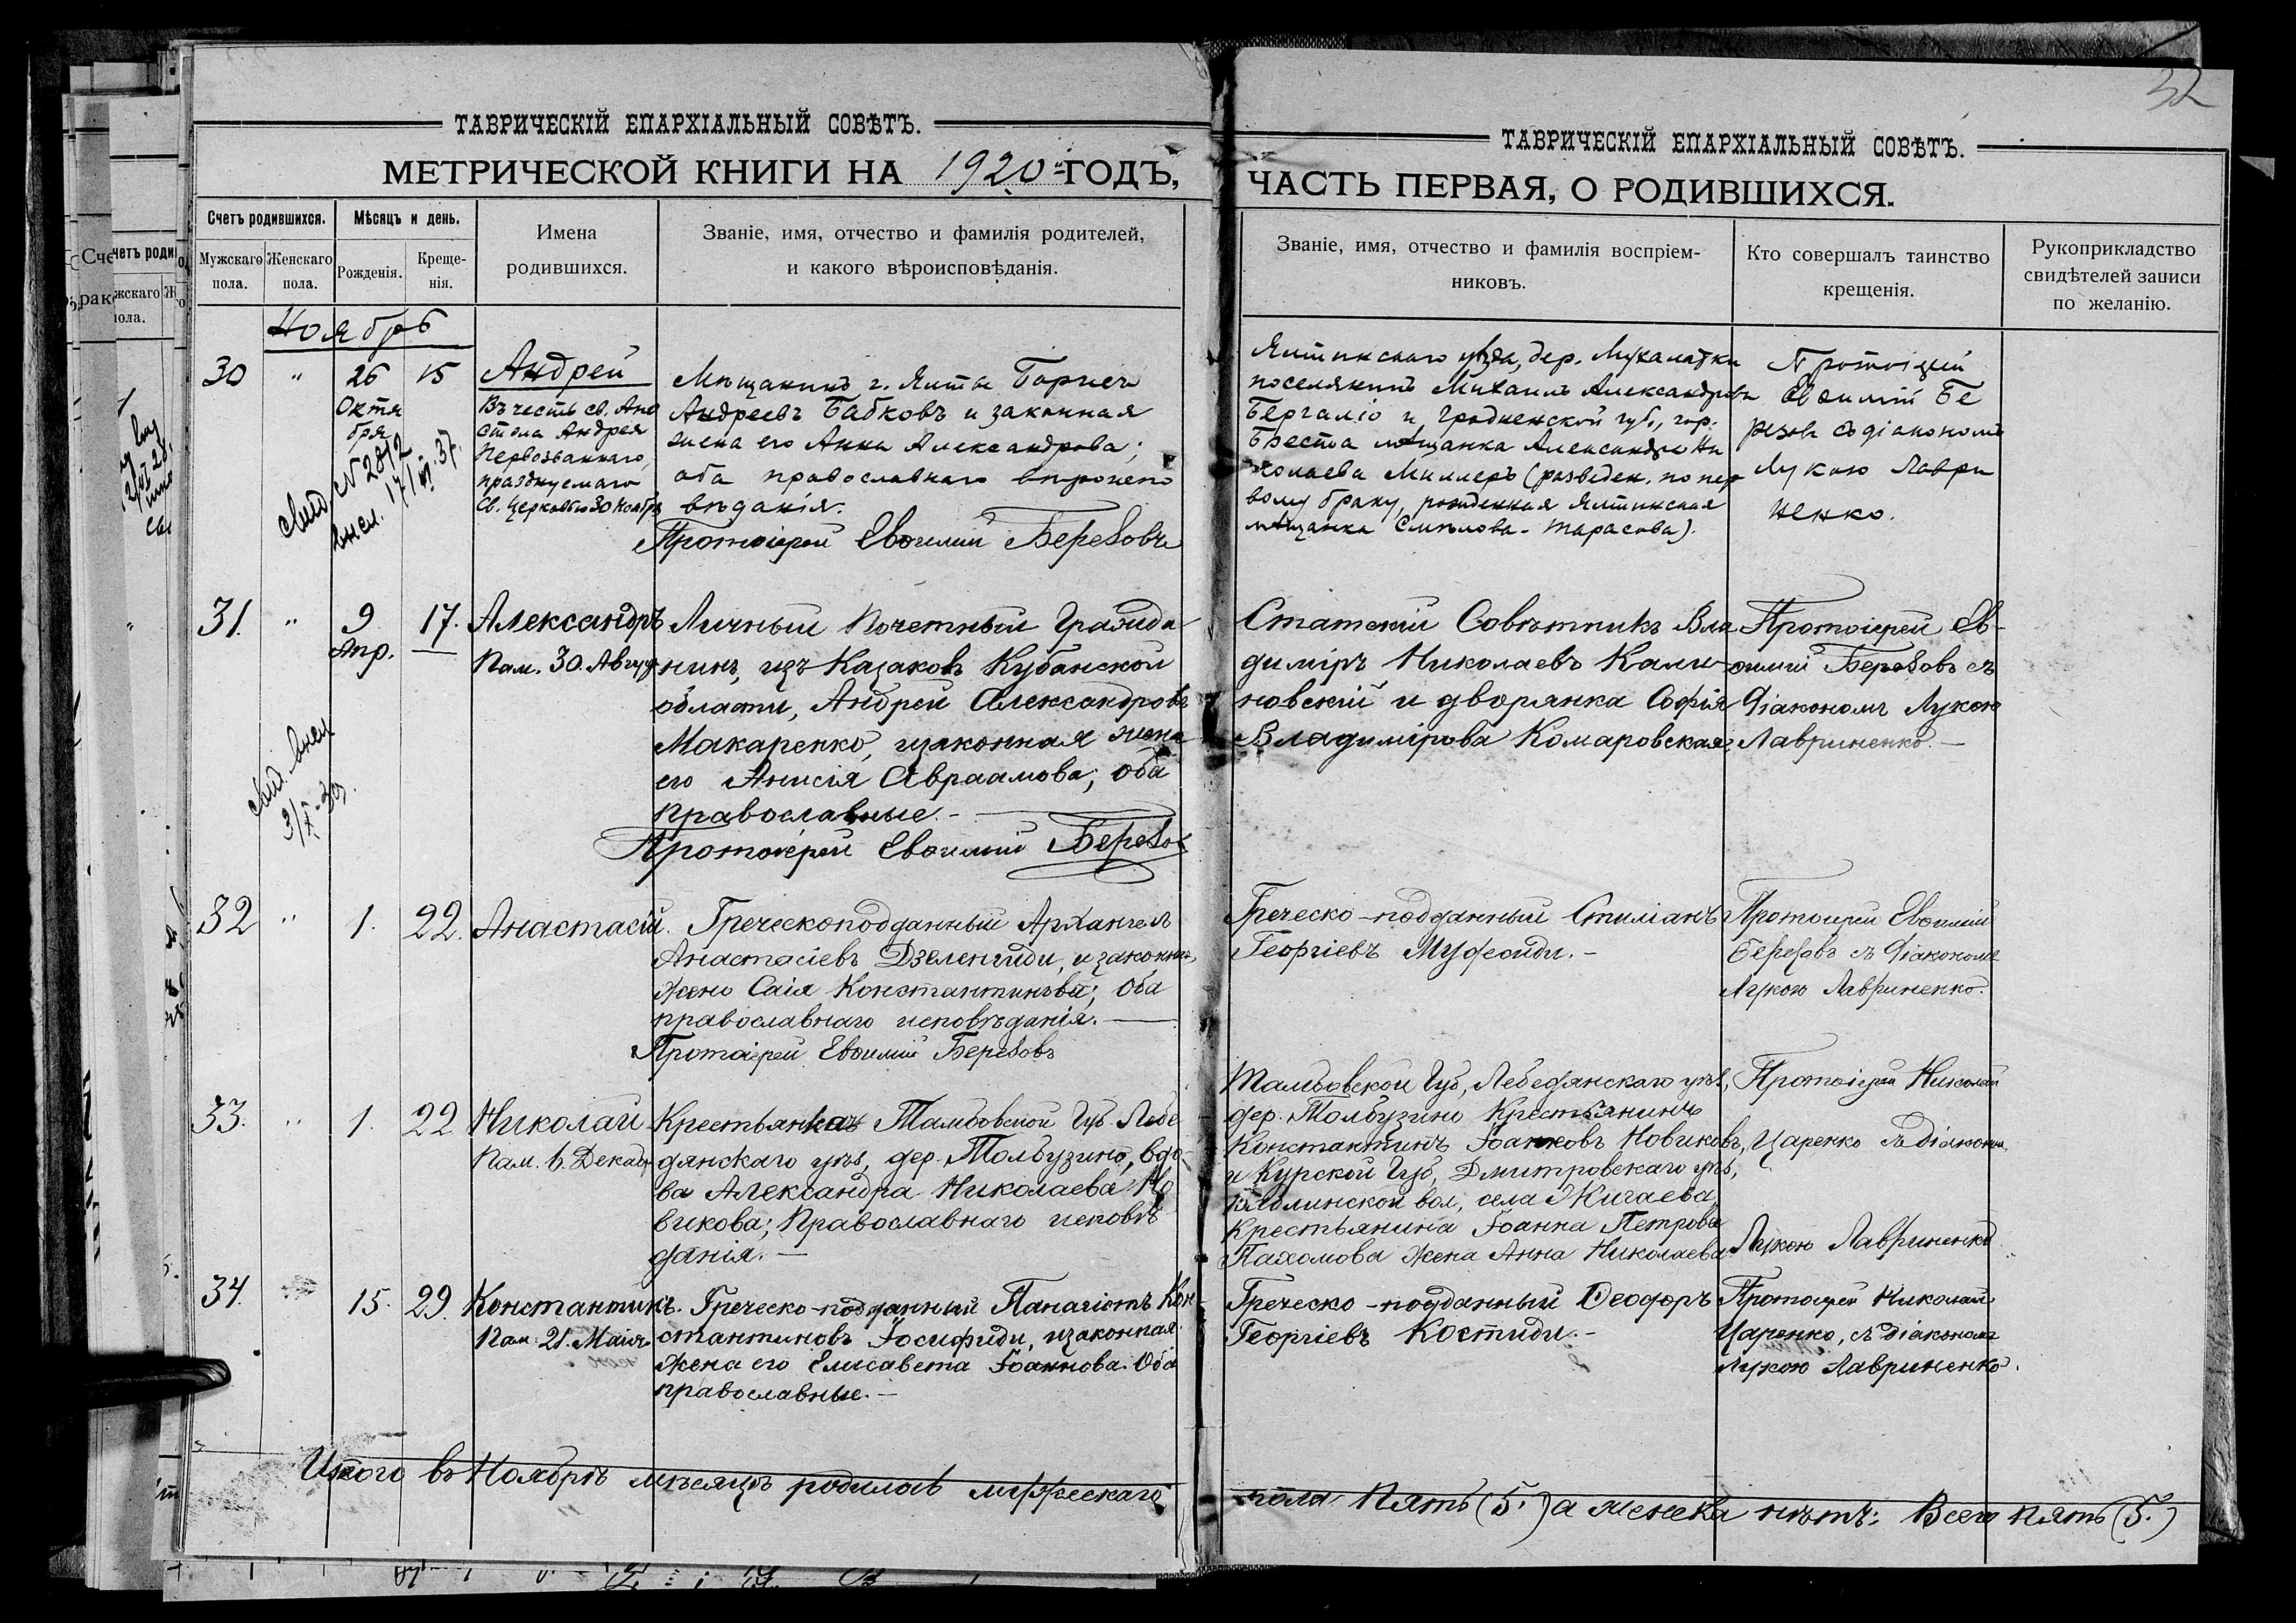 32
ТАВРИЧЕСКІЙ ЕПАРХІАЛЬНЫЙ СОВѢТЪ.
МЕТРИЧЕСКОЙ КНИГИ НА 1920 ГОДЪ,
Счетъ родившихся.
Мѣсяцъ и день.
Мужскаго пола.
Женскаго пола.
Рожденія.
Креще-
нія.
Имена
родившихся.
Званіе, имя, отчество и фамилія родителей,
и какого вѣроисповѣданія.
ТАВРИЧЕСКІЙ ЕПАРХІАЛЬНЫЙ СОВѢТЪ.
ЧАСТЬ ПЕРВАЯ, О РОДИВШИХСЯ.
Званіе, имя, отчество и фамилія воспріем-
никовъ.
Кто совершалъ таинство
крещенія.
Рукоприкладство
свидѣтелей записи
по желанію.
Ноябрь
30 " 26 15
Октя
бря
Андрей
Въ честь св. Апо
стола Андрея
Первозваннаго,
празднуемаго
Св. Церковью 30 Ноября
Мѣщанинъ г. Ялты Борисъ
Андреевъ Бабковъ и законная
жена его Анна Александрова;
оба православнаго
вѣданія.
Протоіерей Евѳимій Березовъ
Ялтинскаго уѣзда, дер. Мухалатки
поселянинъ Михаилъ Александровъ
Бергаліо и Гродненской губ., гор.
Бреста мѣщанка Александра Ни
колаева Миллеръ (разведен. по пер
вому браку, рожденная Ялтинская
мѣщанка Смѣлова-Тарасова).
Протоіерей
Евѳимій Бе
резовъ съ діакономъ
Лукою Лаври
ненко.
Свид. N 2812
17/VI.37.
31. " 9 17.
Апр.
Александръ
Пам. 30. Август
Личный Почетный Гражда-
нинъ, изъ Казаковъ Кубанской
области, Андрей Александровъ
Макаренко, и законная жена
его Анисія Авраамова; оба
православные.-
Протоіерей Евѳимій Березовъ
Статскій Совѣтникъ Вла
диміръ Николаевъ Кали-
новскій и дворянка Софія
Владимірова Комаровская
Протоіерей Ев-
ѳимій Березовъ съ
Діакономъ Лукою
Лавриненко.-
32 " 1. 22.
Анастасій.
Греческоподданный Архангелъ
Анастасіевъ Дзеленгиди, и законн.
жена Саія Константинова; Оба
православнаго исповѣданія.
Протоіерей Евѳимій Березовъ
Греческо-подданный Стиліанъ
Георгіевъ Муфеиди.-
Протоіерей Евѳимій
Березовъ съ Діакономъ
Лукою Лавриненко.
33. " 1. 22
Николай
Пам. 6. Декаб.
Крестьянка Тамбовской Губ. Лебе
дянскаго уѣз, дер. Толбузино, вдо-
ва Александра Николаева Но
викова; Православнаго исповѣ
данія.-
Тамбовской Губ, Лебедянскаго уѣз,
дер. Толбузино Крестьянинъ
Константинъ Іоанновъ Новиковъ,
и Курской Губ, Дмитровскаго уѣз,
вол, села Жигаева,
Крестьянина Іоанна Петрова
Пахомова жена Анна Николаева
Протоіерей Николай
Царенко съ діакономъ
Лукою Лавриненко
34. 15. 29.
Константинъ.
Пам. 21. Маія
Греческо-подданный Панагіотъ Кон-
стантиновъ Іосифиди, и законная
жена его Елисавета Іоаннова. Оба
православные.-
Греческо-подданный Ѳеодоръ
Георгіевъ Костиди.-
Протоіерей Николай
Царенко, съ діакономъ
Лукою Лавриненко.
Итого въ Ноябрѣ мѣсяцѣ родилось мужескаго
пола Пять (5.) а женска нѣтъ; Всего пять (5.)